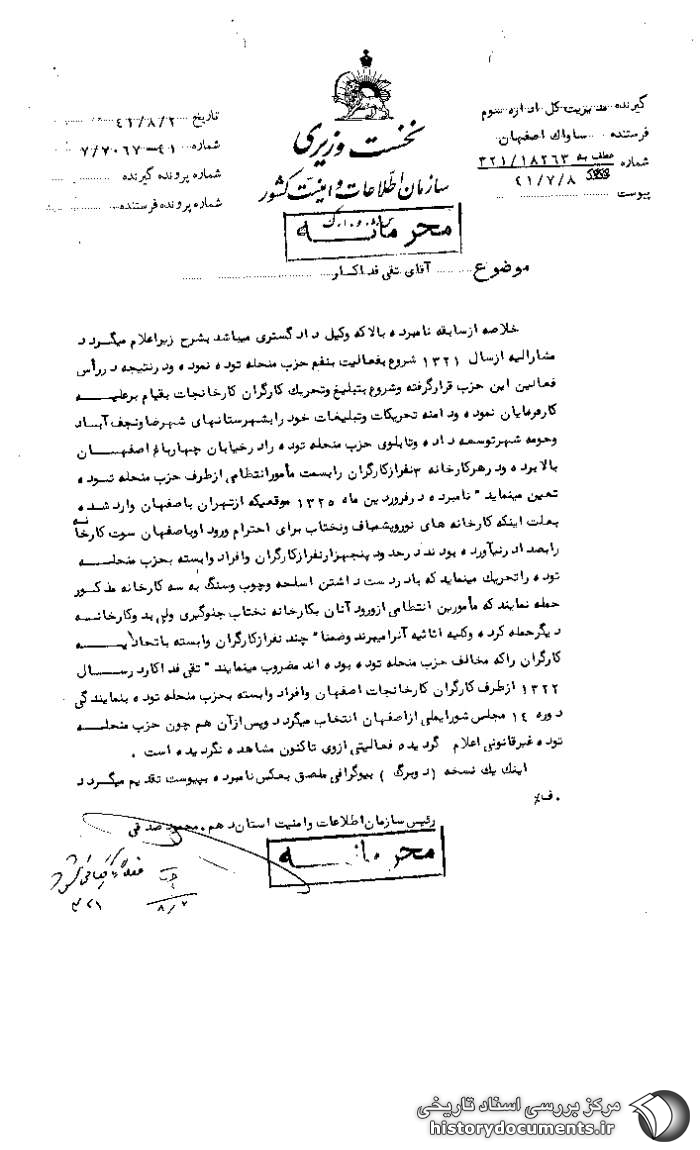 گیرنده مدیریت کل اداره سوم
فرستنده ساواک اصفهان
شماره عطف به ۳۲۱/۱۸۲۶۳
۴۱/۷/۸
پیوست
نخست وزیری
سازمان اطلاعات و امنیت کشور
تاریخ ۴۱/۸/۲
شماره ۷/۷۰۶۷-۴۱
شماره پرونده گیرنده
شماره پرونده فرستنده
محرمانه
موضوع آقای تقی فداکار
خلاصه ازسابقه نامبرده بالاکه وکیل دادگستری میباشد بشرح زیراعلام میگردد
مشارالیه ازسال ۱۳۲۱ شروع بفعالیت بنفع حزب منحله توده نموده ودرنتیجه درراس
فعالین این حزب قرارگرفته وشروع بتبلیغ وتحریک کارگران کارخانجات بقیام برعلیه
کارفرمایان نموده ودامنه تحریکات وتبلیغات خود رابشهرستانهای شهرضا ونجف آباد
وحومه شهرتوسعه داده وتابلوی حزب منحله توده رادرخیابان چهارباغ اصفهان
بالابرده ودرهرکارخانه ۳نفرازکارگران رابسمت مأمورانتظامی ازطرف حزب منحله توده
تعین مینماید " نامبرده درفروردین ماه ۱۳۲۵ موقعیکه ازتهران باصفهان واردشده
بعلت اینکه کارخانه های نوروپشمباف ونختاب برای احترام ورود اوباصفهان سوت کارخانه
رابصدا درنیآورده بودند درحدود پنجهزارنفرازکارگران وافراد وابسته بحزب منحله
توده راتحریک مینماید که بادردست داشتن اسلحه وچوب وسنگ به سه کارخانه مذکور
حمله نمایند که مأمورین انتظامی ازورود آنان بکارخانه نختاب جلوگیری ولی بدوکارخانه
دیگرحمله کرده وکلیه اثاثیه آنرامیبرند وضمنا" چند نفرازکارگران وابسته باتحادیه
کارگران راکه مخالف حزب منحله توده بوده اند مضروب مینمایند " تقی فداکاردرسال
۱۳۲۲ ازطرف کارگران کارخانجات اصفهان وافراد وابسته بحزب منحله توده بنمایندگی
دوره ۱۴ مجلس شورایملی ازاصفهان انتخاب میگردد وپس ازآن هم چون حزب منحله
توده غیرقانونی اعلام گردیده فعالیتی ازوی تاکنون مشاهده نگردیده است .
اینک یک نسخه (دوبرگ) بیوگرافی ملصق بعکس نامبرده بپیوست تقدیم میگردد
.ف٪
رئیس سازمان اطلاعات وامنیت استان دهم . محمود صدقی
محرمانه
۸/۲
مرکز بررسی اسناد تاریخی
historydocuments.ir